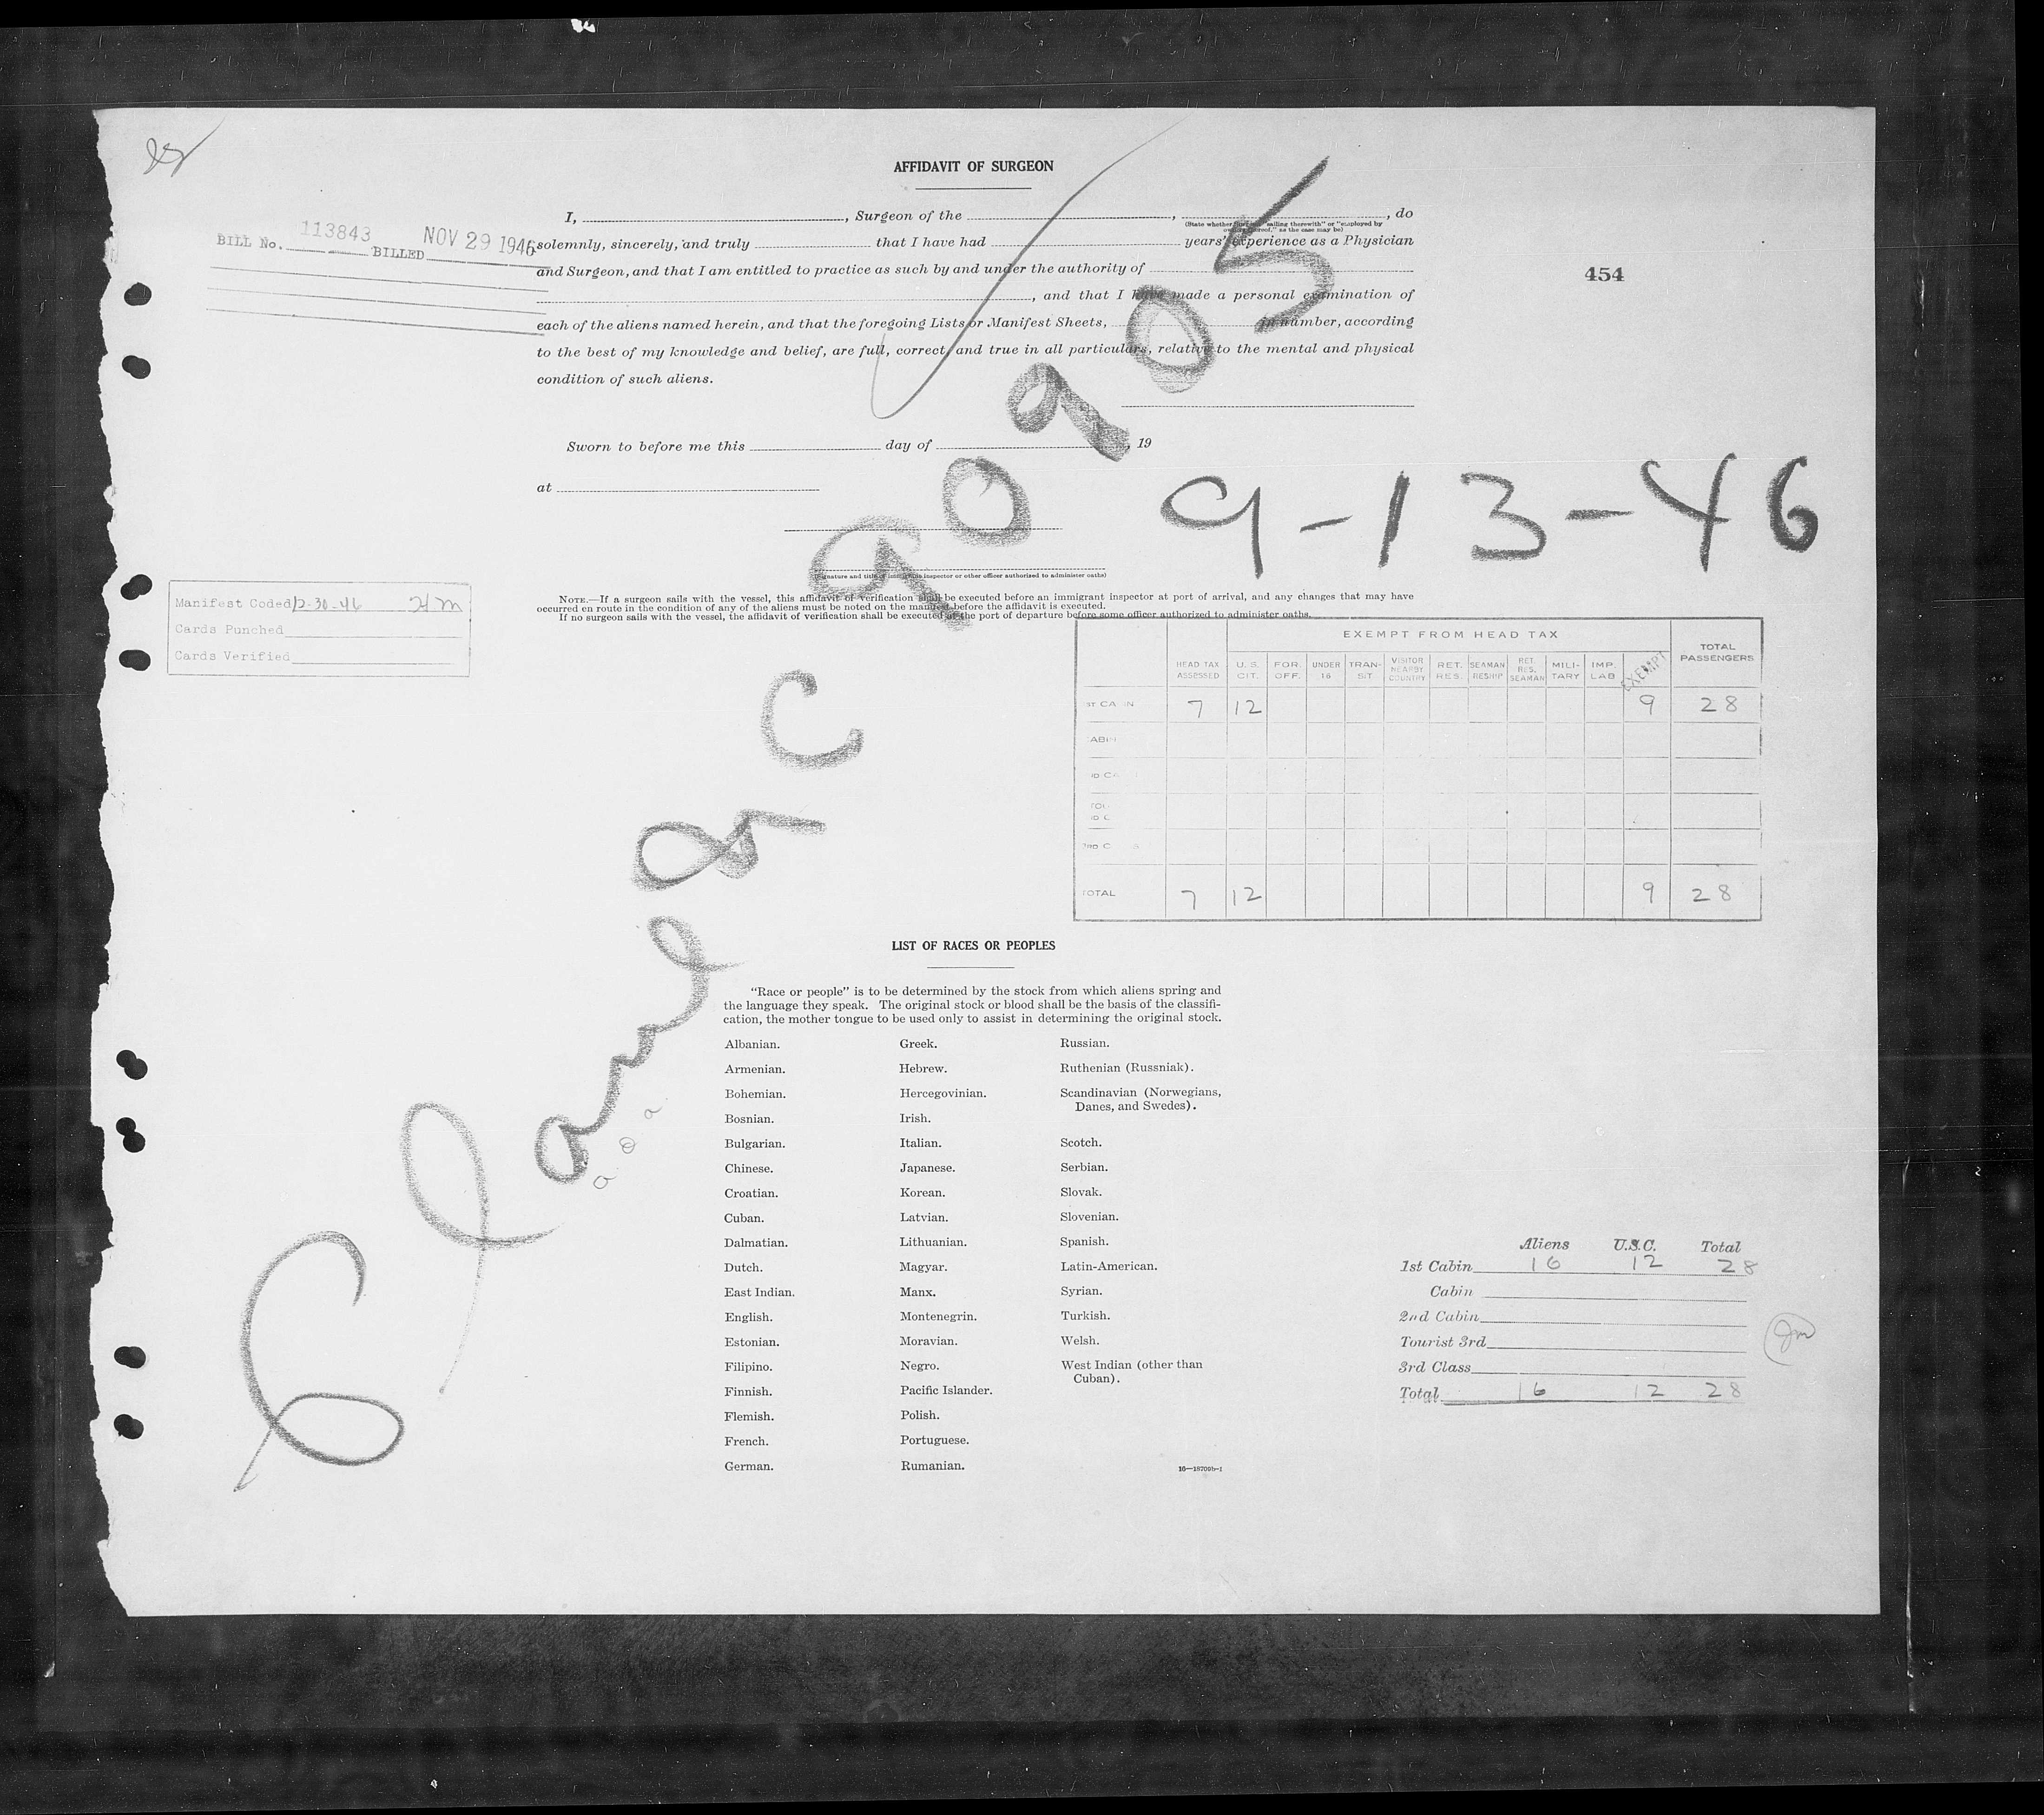 AFFIDAVIT OF SURGEON
I, , Surgeon of the , , do
(State whether "surgeon sailing therewith" or "employed by
owners thereof," as the case may be)
BILL No. 113843 BILLED NOV 29 1946
solemnly, sincerely, and truly that I have had years' experience as a Physician
and Surgeon, and that I am entitled to practice as such by and under the authority of
454
, and that I have made a personal examination of
each of the aliens named herein, and that the foregoing Lists or Manifest Sheets, in number, according
to the best of my knowledge and belief, are full, correct, and true in all particulars, relative to the mental and physical
condition of such aliens.
Sworn to before me this day of , 19
at
9-13-46
(Signature and title of immigrant inspector or other officer authorized to administer oaths)
NOTE.—If a surgeon sails with the vessel, this affidavit of verification shall be executed before an immigrant inspector at port of arrival, and any changes that may have
occurred en route in the condition of any of the aliens must be noted on the manifest before the affidavit is executed.
If no surgeon sails with the vessel, the affidavit of verification shall be executed at the port of departure before some officer authorized to administer oaths.
Manifest Coded 12-30-46
Cards Punched
Cards Verified
EXEMPT FROM HEAD TAX
HEAD TAX ASSESSED U. S. CIT. FOR. OFF. UNDER 16 TRAN- SIT VISITOR NEARBY COUNTRY RET. RES. SEAMAN RESHIP RET. RES. SEAMAN MILI- TARY IMP. LAB EXEMPT TOTAL PASSENGERS
7 12 9 28
TOTAL 7 12 9 28
LIST OF RACES OR PEOPLES
"Race or people" is to be determined by the stock from which aliens spring and
the language they speak. The original stock or blood shall be the basis of the classifi-
cation, the mother tongue to be used only to assist in determining the original stock.
Albanian. Greek. Russian.
Armenian. Hebrew. Ruthenian (Russniak).
Bohemian. Hercegovinian. Scandinavian (Norwegians,
Danes, and Swedes).
Bosnian. Irish.
Bulgarian. Italian. Scotch.
Chinese. Japanese. Serbian.
Croatian. Korean. Slovak.
Cuban. Latvian. Slovenian.
Dalmatian. Lithuanian. Spanish.
Dutch. Magyar. Latin-American.
East Indian. Manx. Syrian.
English. Montenegrin. Turkish.
Estonian. Moravian. Welsh.
Filipino. Negro. West Indian (other than
Cuban).
Finnish. Pacific Islander.
Flemish. Polish.
French. Portuguese.
German. Rumanian.
Aliens U.S.C. Total
1st Cabin 16 12 28
Cabin
2nd Cabin
Tourist 3rd
3rd Class
Total 16 12 28